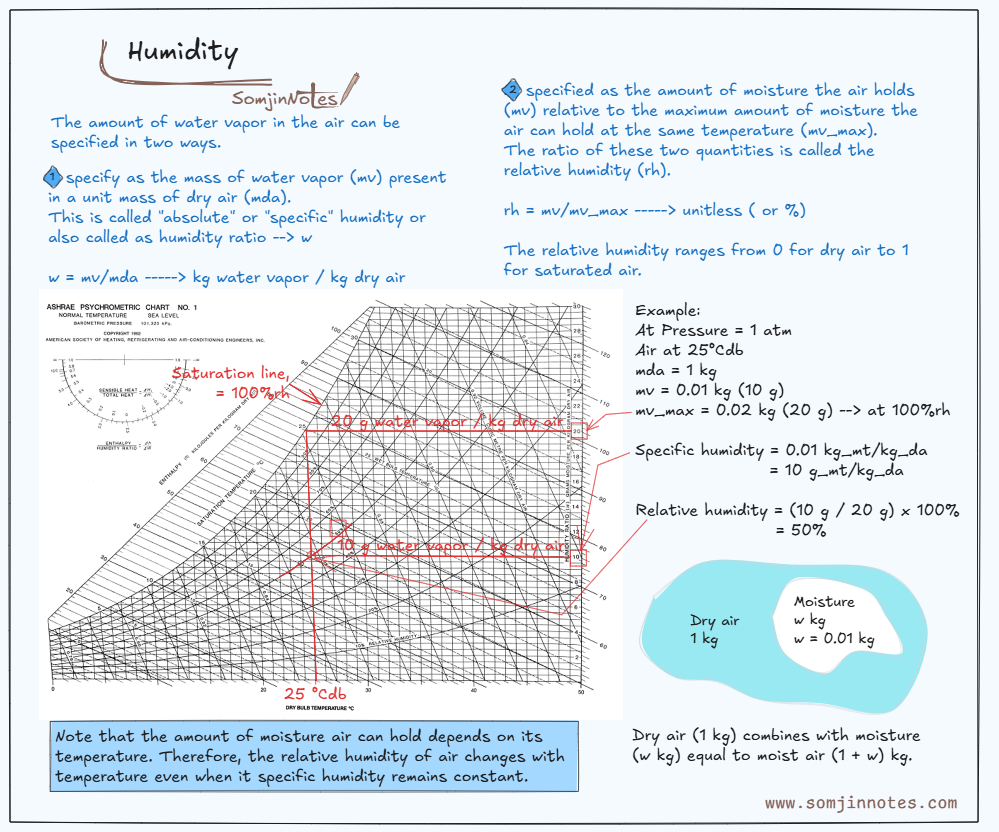 Humidity
SomjinNotes
The amount of water vapor in the air can be
specified in two ways.
1 specify as the mass of water vapor (mv) present
in a unit mass of dry air (mda).
This is called "absolute" or "specific" humidity or
also called as humidity ratio --> w
w = mv/mda -----> kg water vapor / kg dry air
2 specified as the amount of moisture the air holds
(mv) relative to the maximum amount of moisture the
air can hold at the same temperature (mv_max).
The ratio of these two quantities is called the
relative humidity (rh).
rh = mv/mv_max -----> unitless ( or %)
The relative humidity ranges from 0 for dry air to 1
for saturated air.
ASHRAE PSYCHROMETRIC CHART NO. 1
NORMAL TEMPERATURE SEA LEVEL
BAROMETRIC PRESSURE 101.325 kPa.
COPYRIGHT 1992
AMERICAN SOCIETY OF HEATING, REFRIGERATING AND AIR-CONDITIONING ENGINEERS, INC.
SENSIBLE HEAT
TOTAL HEAT
ENTHALPY
HUMIDITY RATIO
Saturation line,
= 100%rh
SATURATION TEMPERATURE °C
20 g water vapor / kg dry air
10 g water vapor / kg dry air
10% RELATIVE HUMIDITY
25 °Cdb
0
20
30
50
DRY BULB TEMPERATURE °C
Example:
At Pressure = 1 atm
Air at 25°Cdb
mda = 1 kg
mv = 0.01 kg (10 g)
mv_max = 0.02 kg (20 g) --> at 100%rh
Specific humidity = 0.01 kg_mt/kg_da
= 10 g_mt/kg_da
Relative humidity = (10 g / 20 g) x 100%
= 50%
Dry air
1 kg
Moisture
w kg
w = 0.01 kg
Dry air (1 kg) combines with moisture
(w kg) equal to moist air (1 + w) kg.
Note that the amount of moisture air can hold depends on its
temperature. Therefore, the relative humidity of air changes with
temperature even when it specific humidity remains constant.
www.somjinnotes.com